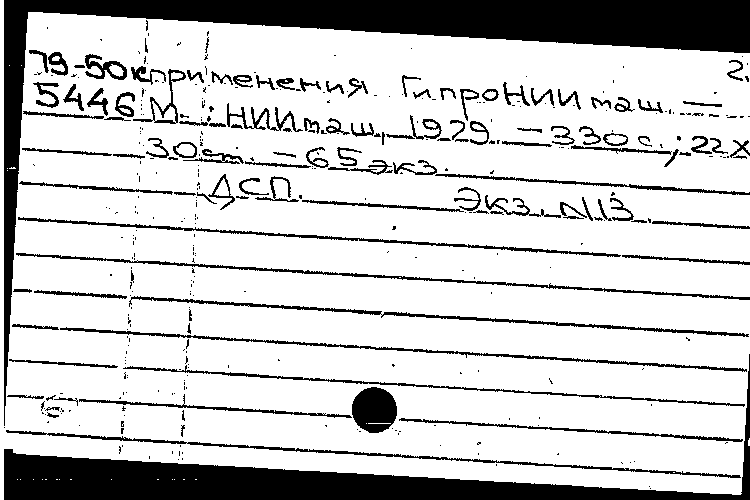 2.
79-50к применения. ГипроНИИмаш. —
5446 М. : НИИмаш, 1979. — 330 с.; 22 х
30 см. — 65 экз.
ДСП. Экз. N13.